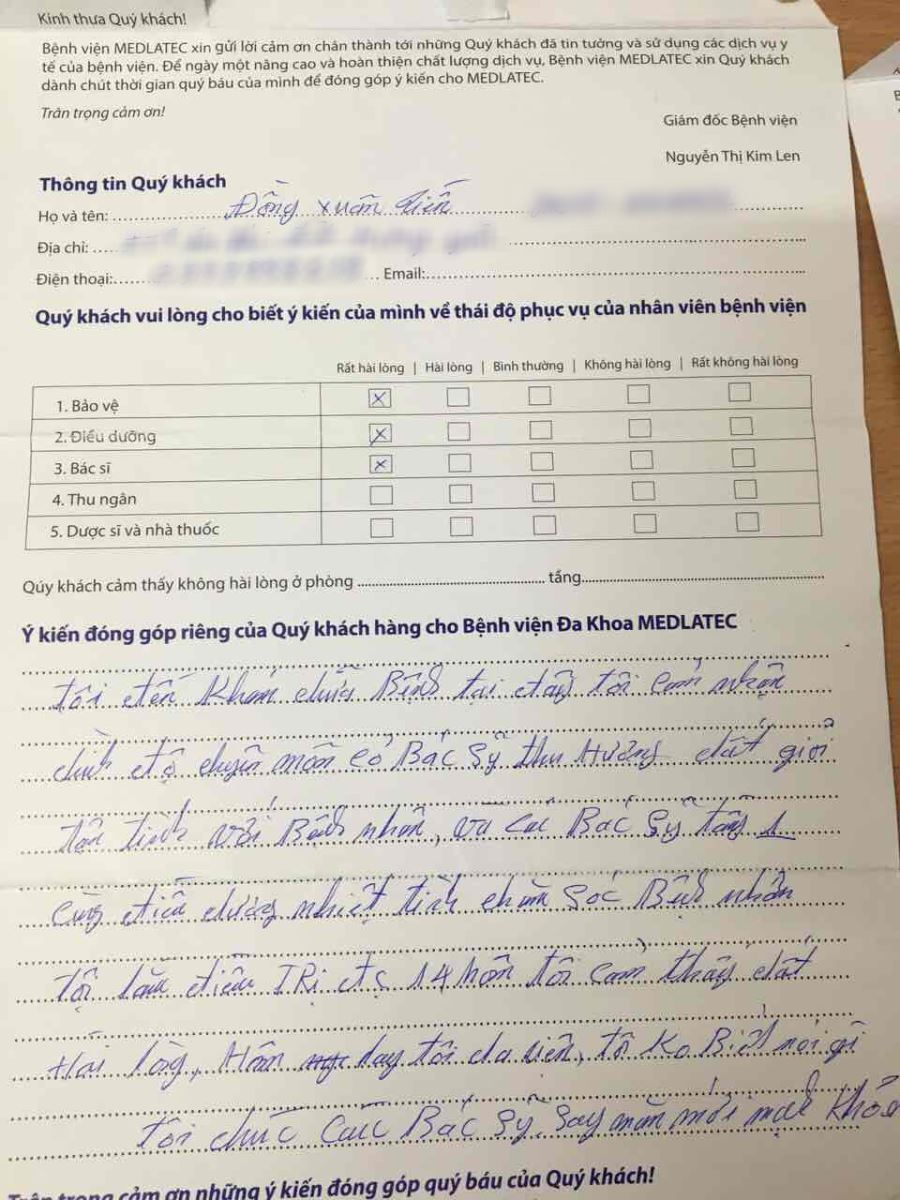 Kính thưa Quý khách!
Bệnh viện MEDLATEC xin gửi lời cảm ơn chân thành tới những Quý khách đã tin tưởng và sử dụng các dịch vụ y
tế của bệnh viện. Để ngày một nâng cao và hoàn thiện chất lượng dịch vụ, Bệnh viện MEDLATEC xin Quý khách
dành chút thời gian quý báu của mình để đóng góp ý kiến cho MEDLATEC.
Trân trọng cảm ơn!
Giám đốc Bệnh viện
Nguyễn Thị Kim Len
Thông tin Quý khách
Họ và tên: Đồng Xuân
Địa chỉ:
Điện thoại: Email:
Quý khách vui lòng cho biết ý kiến của mình về thái độ phục vụ của nhân viên bệnh viện
Rất hài lòng | Hài lòng | Bình thường | Không hài lòng | Rất không hài lòng
1. Bảo vệ
2. Điều dưỡng
3. Bác sĩ
4. Thu ngân
5. Dược sĩ và nhà thuốc
Qúy khách cảm thấy không hài lòng ở phòng tầng
Ý kiến đóng góp riêng của Quý khách hàng cho Bệnh viện Đa Khoa MEDLATEC
Tôi đến Khám chữa Bệnh tại đây tôi cảm nhận
độ chuyên môn Bác Sỹ thu Hường giỏi
tận tình với Bệnh nhân, và các Bác Sỹ tầng 1
Cùng điều dưỡng nhiệt tình chăm Sóc Bệnh nhân
điều TRị 14 hôm tôi cảm thấy
Hài lòng, Hôm nay tôi viện, Ko Biết nói gì
Tôi chúc Các Bác Sỹ
Trân trọng cảm ơn những ý kiến đóng góp quý báu của Quý khách!